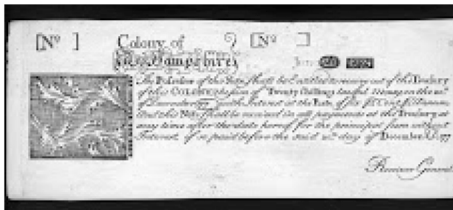 [No ] Colony of [No ]
New Hampshire
The Possessor of this Note, shall be entitled to receive out of the Treasury
of this COLONY the sum of Twenty Shillings Lawful Money on the
of December 1777 with Interest at the Rate of six p Cent p Annum
And this Note shall be received in all payments at the Treasury at
any time after the date hereof for the principal sum without
Interest if so paid before the said day of December 1777
Receiver General